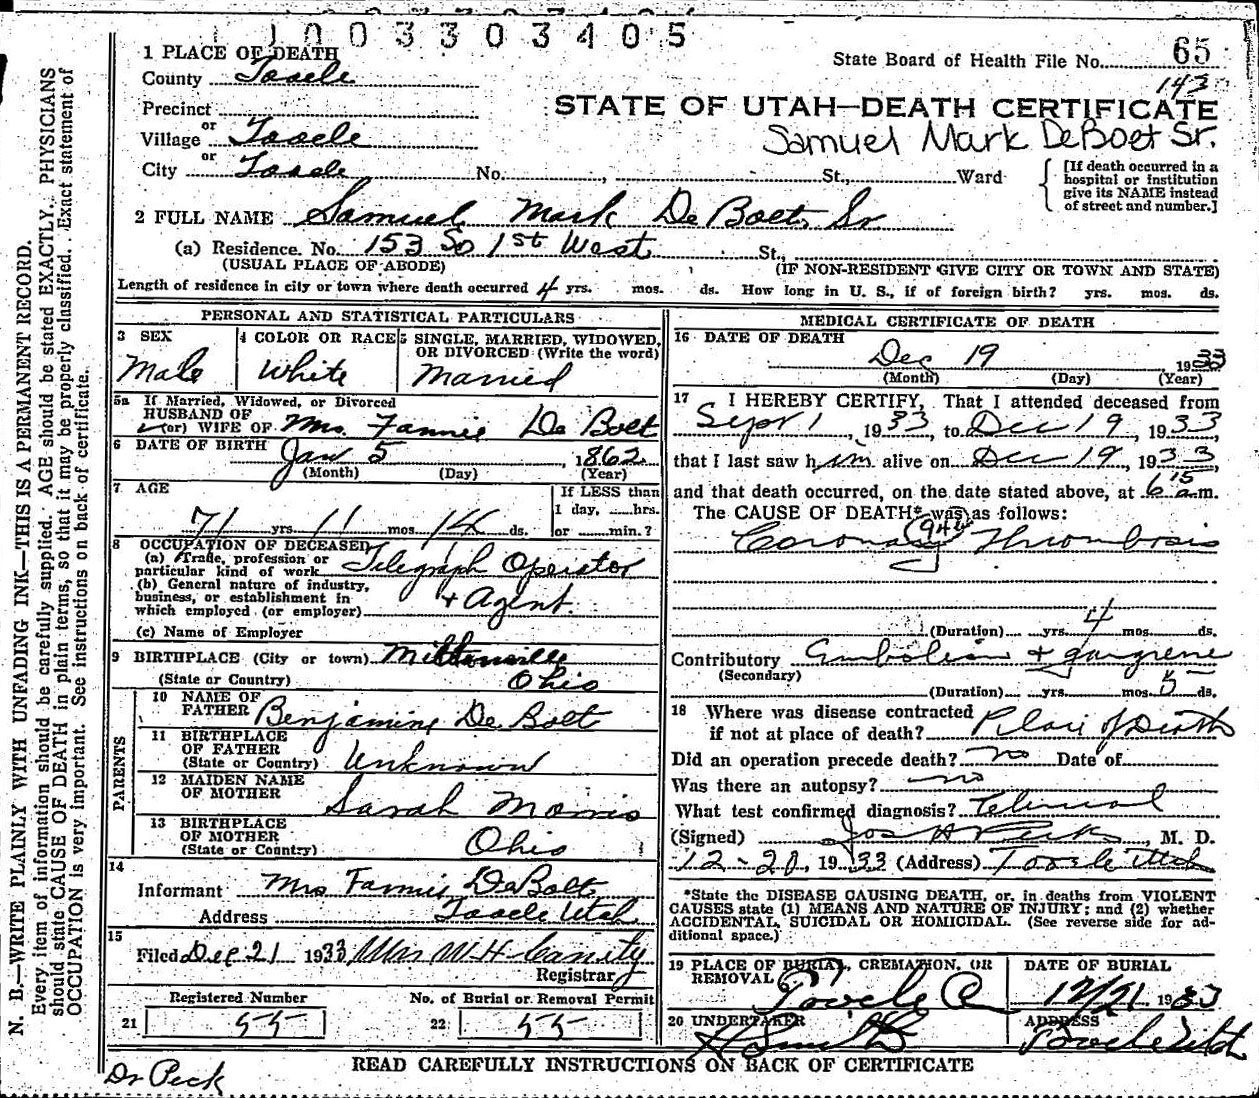 1 1 0 0 3 3 0 3 4 0 5
1 PLACE OF DEATH
State Board of Health File No. 65
143
County Tooele
STATE OF UTAH—DEATH CERTIFICATE
Precinct
Samuel Mark DeBoet Sr.
or
Village Tooele
or
City Tooele No. , St., Ward
[If death occurred in a hospital or institution give its NAME instead of street and number.]
2 FULL NAME Samuel Mark De Bolt, Sr
(a) Residence. No. 153 So 1st West St.,
(USUAL PLACE OF ABODE) (IF NON-RESIDENT GIVE CITY OR TOWN AND STATE)
Length of residence in city or town where death occurred 4 yrs. mos. ds. How long in U. S., if of foreign birth? yrs. mos. ds.
PERSONAL AND STATISTICAL PARTICULARS
3 SEX 4 COLOR OR RACE 5 SINGLE, MARRIED, WIDOWED,
OR DIVORCED (Write the word)
Male White Married
5a If Married, Widowed, or Divorced
HUSBAND OF
(or) WIFE OF Mrs. Fannie De Bolt
6 DATE OF BIRTH Jan 5, 1862
(Month) (Day) (Year)
7 AGE
If LESS than
1 day, hrs.
71 yrs. 11 mos. 14 ds. or min.?
8 OCCUPATION OF DECEASED
(a) Trade, profession or
particular kind of work Telegraph Operator
(b) General nature of industry,
business, or establishment in
which employed (or employer) + Agent
(c) Name of Employer
9 BIRTHPLACE (City or town)
(State or Country) Ohio
PARENTS
10 NAME OF
FATHER Benjamine De Bolt
11 BIRTHPLACE
OF FATHER
(State or Country) Unknown
12 MAIDEN NAME
OF MOTHER Sarah Morris
13 BIRTHPLACE
OF MOTHER
(State or Country) Ohio
14
Informant Mrs Fannie DeBolt
Address Tooele Utah
15
Filed Dec 21 1933 Mrs W H Cassity
Registrar
Registered Number No. of Burial or Removal Permit
21 55 22 55
MEDICAL CERTIFICATE OF DEATH
16 DATE OF DEATH
Dec 19 1933
(Month) (Day) (Year)
17 I HEREBY CERTIFY, That I attended deceased from
Sept 1, 1933, to Dec 19, 1933,
that I last saw him alive on Dec 19, 1933
and that death occurred, on the date stated above, at 6 15 a.m.
The CAUSE OF DEATH* was as follows:
94b
Coronary Thrombosis
(Duration) yrs. 4 mos. ds.
Contributory Embolism + gangrene
(Secondary)
(Duration) yrs. mos. 5 ds.
18 Where was disease contracted
if not at place of death? Place of Death
Did an operation precede death? no Date of
Was there an autopsy? no
What test confirmed diagnosis?
(Signed) Jos H Peck, M. D.
12-20, 1933 (Address) Tooele Utah
*State the DISEASE CAUSING DEATH, or, in deaths from VIOLENT
CAUSES state (1) MEANS AND NATURE OF INJURY; and (2) whether
ACCIDENTAL, SUICIDAL OR HOMICIDAL. (See reverse side for ad-
ditional space.)
19 PLACE OF BURIAL, CREMATION, OR
REMOVAL
DATE OF BURIAL
Tooele C 12/21 1933
20 UNDERTAKER ADDRESS
Tooele Utah
READ CAREFULLY INSTRUCTIONS ON BACK OF CERTIFICATE
Dr Peck
N. B.—WRITE PLAINLY WITH UNFADING INK—THIS IS A PERMANENT RECORD.
Every item of information should be carefully supplied. AGE should be stated EXACTLY, PHYSICIANS
should state CAUSE OF DEATH in plain terms, so that it may be properly classified. Exact statement of
OCCUPATION is very important. See instructions on back of certificate.